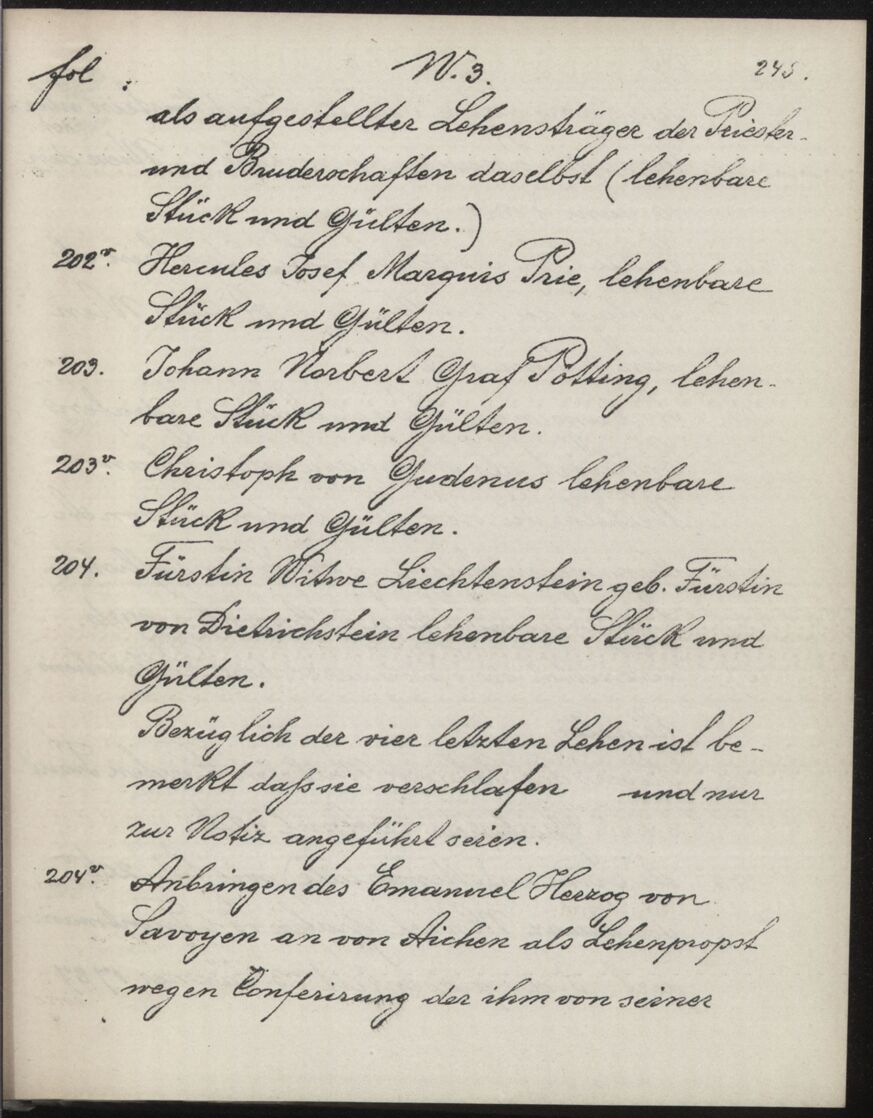 fol : W. 3. 245.
als aufgestellter Lehensträger der Priester-
und Bruderschaften daselbst (lehenbare
Stück und Gülten.)
202v. Hercules Josef Marquis Prie, lehenbare
Stück und Gülten.
203. Johann Norbert Graf Potting, lehen-
bare Stück und Gülten.
203v. Christoph von Gudenus lehenbare
Stück und Gülten.
204. Fürstin Witwe Liechtenstein geb. Fürstin
von Dietrichstein lehenbare Stück und
Gülten.
Bezüglich der vier letzten Lehen ist be-
merkt dass sie verschlafen und nur
zur Notiz angeführt seien.
204v. Anbringen des Emanuel Herzog von
Savoyen an von Aichen als Lehenpropst
wegen Conferirung der ihm von seiner